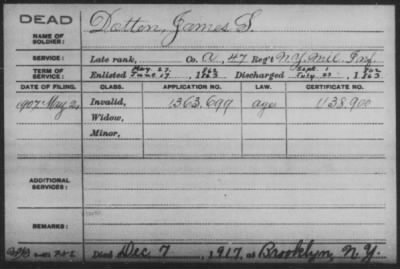 DEAD
NAME OF SOLDIER: Dotten, James S.
SERVICE: Late rank, Co. A, 47 Reg't N.Y. Mil. Inf.
TERM OF SERVICE: Enlisted May 27, 1862 June 17, 1863 Discharged Sept. 1 1862 July 23, 1863
DATE OF FILING. CLASS. APPLICATION NO. LAW. CERTIFICATE NO.
1907 May 2 Invalid, 1363,699 age 1138,900
Widow,
Minor,
ADDITIONAL SERVICES:
REMARKS:
Died Dec 7, 1917, at Brooklyn, N.Y.